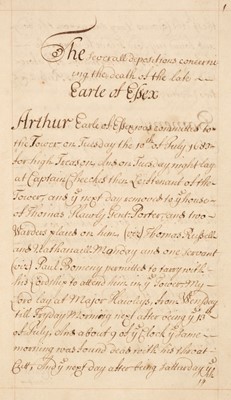 The severall depositions concerne
ing the death of the late
Earle of Essex
Arthur Earle of Essex was committed to
the Tower on Tuesday the 10th of July 1683
for high Treason, And on Tuesday night lay
at Captain Cheeks then Lieutenant of the
Tower, and ye next day removed to ye house
of Thomas Hawly Gent. Porter, and two
Warders placed on him (viz) Thomas Russell
and Nathanaell Monday and one servant
(viz) Paul Bomeny permitted to tarry with
his Lordship to attend him in ye Tower My
Lord lay at Major Hawleys, from Wensday
till Fryday Morning next after being ye 13
of July, And about 9 of ye Clock ye same
morning was found dead with his throat
Cutt; And ye next day after being Satturday ye
14